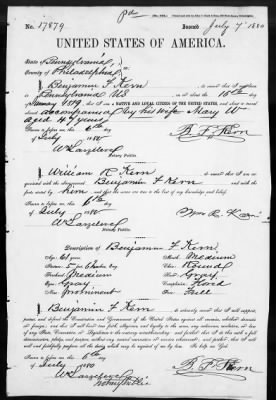 No. 17879 Issued July 7th 1880
UNITED STATES OF AMERICA.
State of Pennsylvania,
County of Philadelphia
I Benjamin F Kern do swear that I was born in
Pennsylvania US on the 18th day
of January 1819 that I am a NATIVE and LOYAL CITIZEN OF THE UNITED STATES, and about to travel
abroad accompanied by his wife Mary W
aged 49 years
Sworn to before me, this 6th day
of July 1880
B. F. Kern
Notary Public.
I William R Kern do swear that I am
acquainted with the Benjamin F Kern and with the facts
stated by him and that the same are true to the best of my knowledge and belief.
Sworn to before me, this 6th
of July 1880
Wm R. Kern
Notary Public.
Description of Benjamin F Kern
Age: 61 years Mouth Medium
Stature: 5 feet inches, Eng. Chin: Round
Forehead: Medium Hair: Gray
Eyes: Gray Complexion: Florid
Nose: Prominent Face: Full
I Benjamin F Kern do solemnly swear that I will support,
protect, and defend the Constitution and Government of the United States against all enemies, whether domestic
or foreign; and that I will bear true faith, allegiance, and loyalty to the same, any ordinance, resolution, or law
of any State, Convention, or Legislature to the contrary notwithstanding; and further, that I do this with a full
determination, pledge, and purpose, without any mental reservation or evasion whatsoever; and further, that I will
well and faithfully perform all the duties which may be required of me by law. So help me God.
Sworn to before me, this 6th day
of July 1880
B. F. Kern